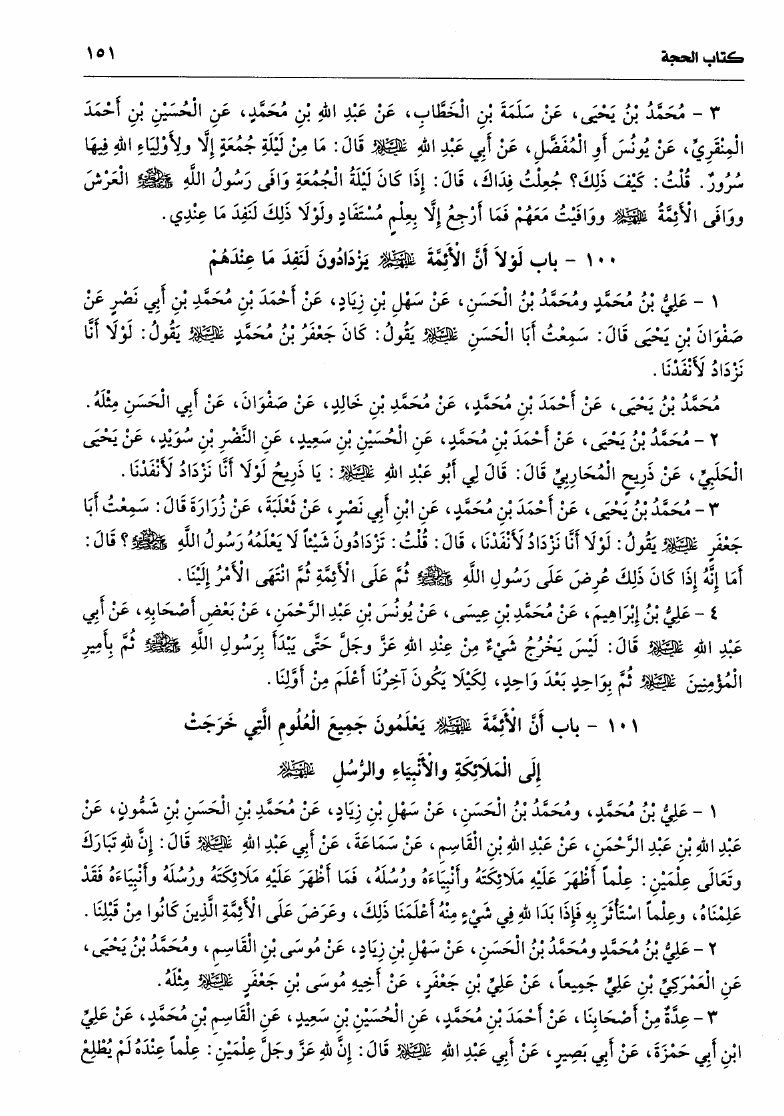 كتاب الحجة ١٥١
٣ - مُحَمَّدُ بْنُ يَحْيَى، عَنْ سَلَمَةَ بْنِ الْخَطَّابِ، عَنْ عَبْدِ اللهِ بْنِ مُحَمَّدٍ، عَنِ الْحُسَيْنِ بْنِ أَحْمَدَ
الْمِنْقَرِيِّ، عَنْ يُونُسَ أَوِ الْمُفَضَّلِ، عَنْ أَبِي عَبْدِ اللهِ عليه السلام قَالَ: مَا مِنْ لَيْلَةِ جُمُعَةٍ إِلَّا ولِأَوْلِيَاءِ اللهِ فِيهَا
سُرُورٌ. قُلْتُ: كَيْفَ ذَلِكَ؟ جُعِلْتُ فِدَاكَ، قَالَ: إِذَا كَانَ لَيْلَةُ الْجُمُعَةِ وَافَى رَسُولُ اللَّهِ ﷺ الْعَرْشَ
ووَافَى الْأَئِمَّةُ عليهم السلام ووَافَيْتُ مَعَهُمْ فَمَا أَرْجِعُ إِلَّا بِعِلْمٍ مُسْتَفَادٍ ولَوْلَا ذَلِكَ لَنَفِدَ مَا عِنْدِي.
١٠٠ - باب لَوْلاَ أَنَّ الْأَئِمَّةَ عليهم السلام يَزْدَادُونَ لَنَفِدَ مَا عِنْدَهُمْ
١ - عَلِيُّ بْنُ مُحَمَّدٍ ومُحَمَّدُ بْنُ الْحَسَنِ، عَنْ سَهْلِ بْنِ زِيَادٍ، عَنْ أَحْمَدَ بْنِ مُحَمَّدِ بْنِ أَبِي نَصْرٍ عَنْ
صَفْوَانَ بْنِ يَحْيَى قَالَ: سَمِعْتُ أَبَا الْحَسَنِ عليه السلام يَقُولُ: كَانَ جَعْفَرُ بْنُ مُحَمَّدٍ عليه السلام يَقُولُ: لَوْلَا أَنَّا
نَزْدَادُ لَأَنْفَدْنَا.
مُحَمَّدُ بْنُ يَحْيَى، عَنْ أَحْمَدَ بْنِ مُحَمَّدٍ، عَنْ مُحَمَّدِ بْنِ خَالِدٍ، عَنْ صَفْوَانَ، عَنْ أَبِي الْحَسَنِ مِثْلَهُ.
٢ - مُحَمَّدُ بْنُ يَحْيَى، عَنْ أَحْمَدَ بْنِ مُحَمَّدٍ، عَنِ الْحُسَيْنِ بْنِ سَعِيدٍ، عَنِ النَّضْرِ بْنِ سُوَيْدٍ، عَنْ يَحْيَى
الْحَلَبِيِّ، عَنْ ذَرِيحٍ الْمُحَارِبِيِّ قَالَ: قَالَ لِي أَبُو عَبْدِ اللهِ عليه السلام: يَا ذَرِيحُ لَوْلَا أَنَّا نَزْدَادُ لَأَنْفَدْنَا.
٣ - مُحَمَّدُ بْنُ يَحْيَى، عَنْ أَحْمَدَ بْنِ مُحَمَّدٍ، عَنِ ابْنِ أَبِي نَصْرٍ، عَنْ ثَعْلَبَةَ، عَنْ زُرَارَةَ قَالَ: سَمِعْتُ أَبَا
جَعْفَرٍ عليه السلام يَقُولُ: لَوْلَا أَنَّا نَزْدَادُ لَأَنْفَدْنَا، قَالَ: قُلْتُ: تَزْدَادُونَ شَيْئاً لَا يَعْلَمُهُ رَسُولُ اللهِ ﷺ؟ قَالَ:
أَمَا إِنَّهُ إِذَا كَانَ ذَلِكَ عُرِضَ عَلَى رَسُولِ اللهِ ﷺ ثُمَّ عَلَى الْأَئِمَّةِ ثُمَّ انْتَهَى الْأَمْرُ إِلَيْنَا.
٤ - عَلِيُّ بْنُ إِبْرَاهِيمَ، عَنْ مُحَمَّدِ بْنِ عِيسَى، عَنْ يُونُسَ بْنِ عَبْدِ الرَّحْمَنِ، عَنْ بَعْضِ أَصْحَابِهِ، عَنْ أَبِي
عَبْدِ اللهِ عليه السلام قَالَ: لَيْسَ يَخْرُجُ شَيْءٌ مِنْ عِنْدِ اللهِ عَزَّ وجَلَّ حَتَّى يَبْدَأَ بِرَسُولِ اللَّهِ ﷺ ثُمَّ بِأَمِيرِ
الْمُؤْمِنِينَ عليه السلام ثُمَّ بِوَاحِدٍ بَعْدَ وَاحِدٍ، لِكَيْلَا يَكُونَ آخِرُنَا أَعْلَمَ مِنْ أَوَّلِنَا.
١٠١ - باب أَنَّ الْأَئِمَّةَ عليهم السلام يَعْلَمُونَ جَمِيعَ الْعُلُومِ الَّتِي خَرَجَتْ
إِلَى الْمَلَائِكَةِ والْأَنْبِيَاءِ والرُّسُلِ عليهم السلام
١ - عَلِيُّ بْنُ مُحَمَّدٍ، ومُحَمَّدُ بْنُ الْحَسَنِ، عَنْ سَهْلِ بْنِ زِيَادٍ، عَنْ مُحَمَّدِ بْنِ الْحَسَنِ بْنِ شَمُّونٍ، عَنْ
عَبْدِ اللهِ بْنِ عَبْدِ الرَّحْمَنِ، عَنْ عَبْدِ اللهِ بْنِ الْقَاسِمِ، عَنْ سَمَاعَةَ، عَنْ أَبِي عَبْدِ اللهِ عليه السلام قَالَ: إِنَّ للهِ تَبَارَكَ
وتَعَالَى عِلْمَيْنِ: عِلْماً أَظْهَرَ عَلَيْهِ مَلَائِكَتَهُ وأَنْبِيَاءَهُ ورُسُلَهُ، فَمَا أَظْهَرَ عَلَيْهِ مَلَائِكَتَهُ ورُسُلَهُ وأَنْبِيَاءَهُ فَقَدْ
عَلِمْنَاهُ، وعِلْماً اسْتَأْثَرَ بِهِ فَإِذَا بَدَا للهِ فِي شَيْءٍ مِنْهُ أَعْلَمَنَا ذَلِكَ، وعَرَضَ عَلَى الْأَئِمَّةِ الَّذِينَ كَانُوا مِنْ قَبْلِنَا.
٢ - عَلِيُّ بْنُ مُحَمَّدٍ ومُحَمَّدُ بْنُ الْحَسَنِ، عَنْ سَهْلِ بْنِ زِيَادٍ، عَنْ مُوسَى بْنِ الْقَاسِمِ، ومُحَمَّدُ بْنُ يَحْيَى،
عَنِ الْعَمْرَكِيِّ بْنِ عَلِيٍّ جَمِيعاً، عَنْ عَلِيِّ بْنِ جَعْفَرٍ، عَنْ أَخِيهِ مُوسَى بْنِ جَعْفَرٍ عليه السلام مِثْلَهُ.
٣ - عِدَّةٌ مِنْ أَصْحَابِنَا، عَنْ أَحْمَدَ بْنِ مُحَمَّدٍ، عَنِ الْحُسَيْنِ بْنِ سَعِيدٍ، عَنِ الْقَاسِمِ بْنِ مُحَمَّدٍ، عَنْ عَلِيِّ
ابْنِ أَبِي حَمْزَةَ، عَنْ أَبِي بَصِيرٍ، عَنْ أَبِي عَبْدِ اللهِ عليه السلام قَالَ: إِنَّ للهِ عَزَّ وجَلَّ عِلْمَيْنِ: عِلْماً عِنْدَهُ لَمْ يُطْلِعْ